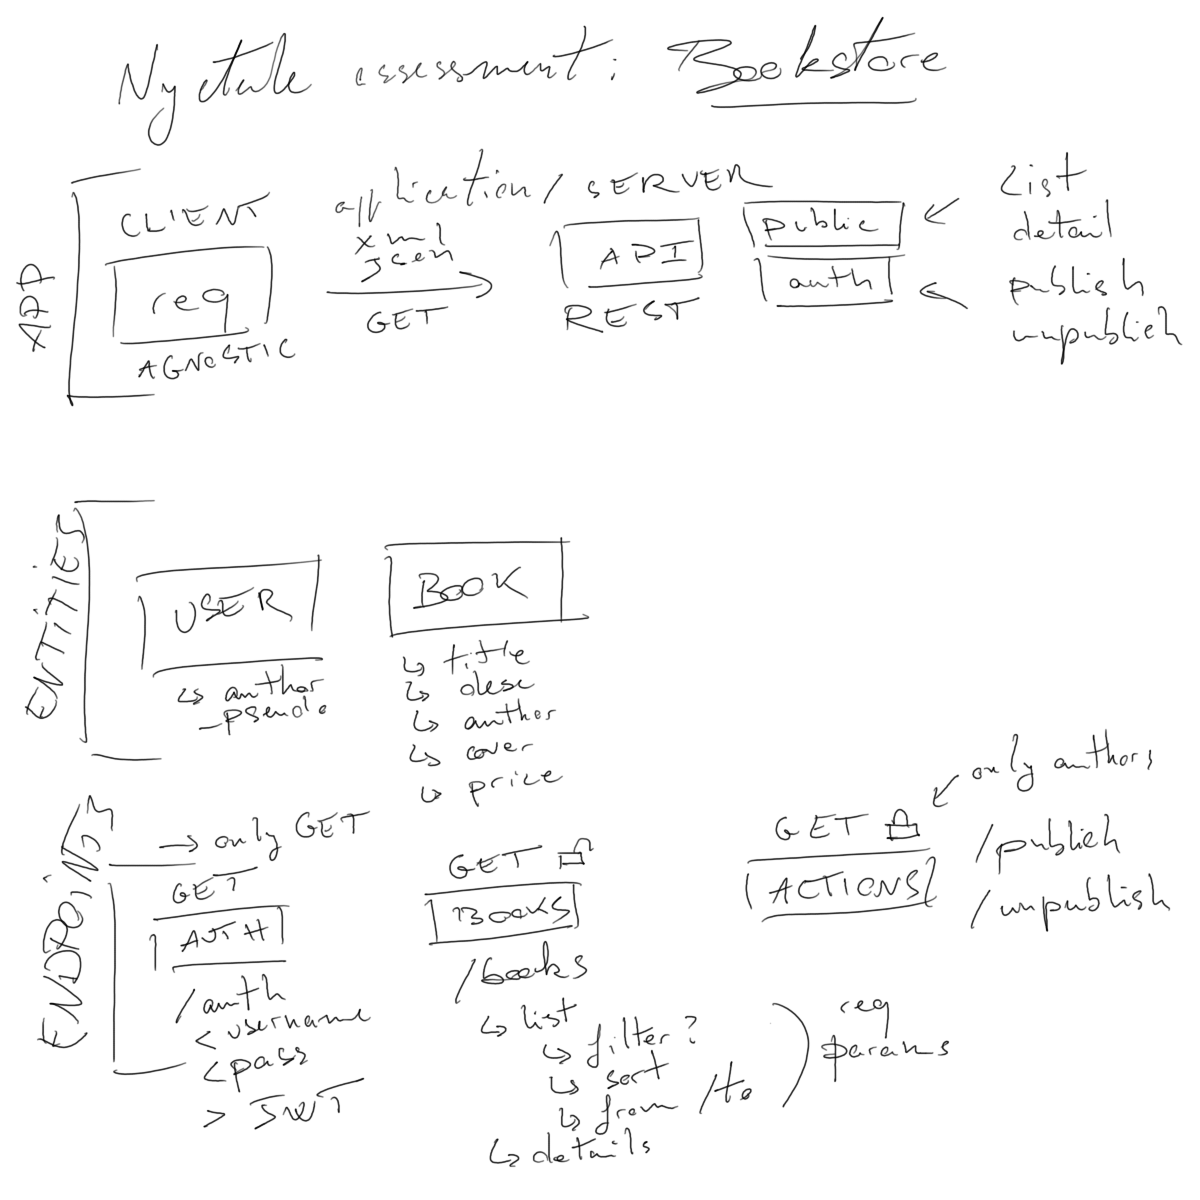 Nyctale assessment: Bookstore
APP
CLIENT
req
AGNOSTIC
application/
xml
json
GET
SERVER
API
REST
public
auth
List
detail
publish
unpublish
ENTITIES
USER
↳ author
- pseudo
BOOK
↳ title
↳ desc
↳ author
↳ cover
↳ price
ENDPOINTS
→ only GET
GET
AUTH
/auth
< username
< pass
> JWT
GET
BOOKS
/books
↳ list
↳ filter?
↳ sort
↳ from/to
req
params
↳ details
only authors
GET
ACTIONS
/publish
/unpublish